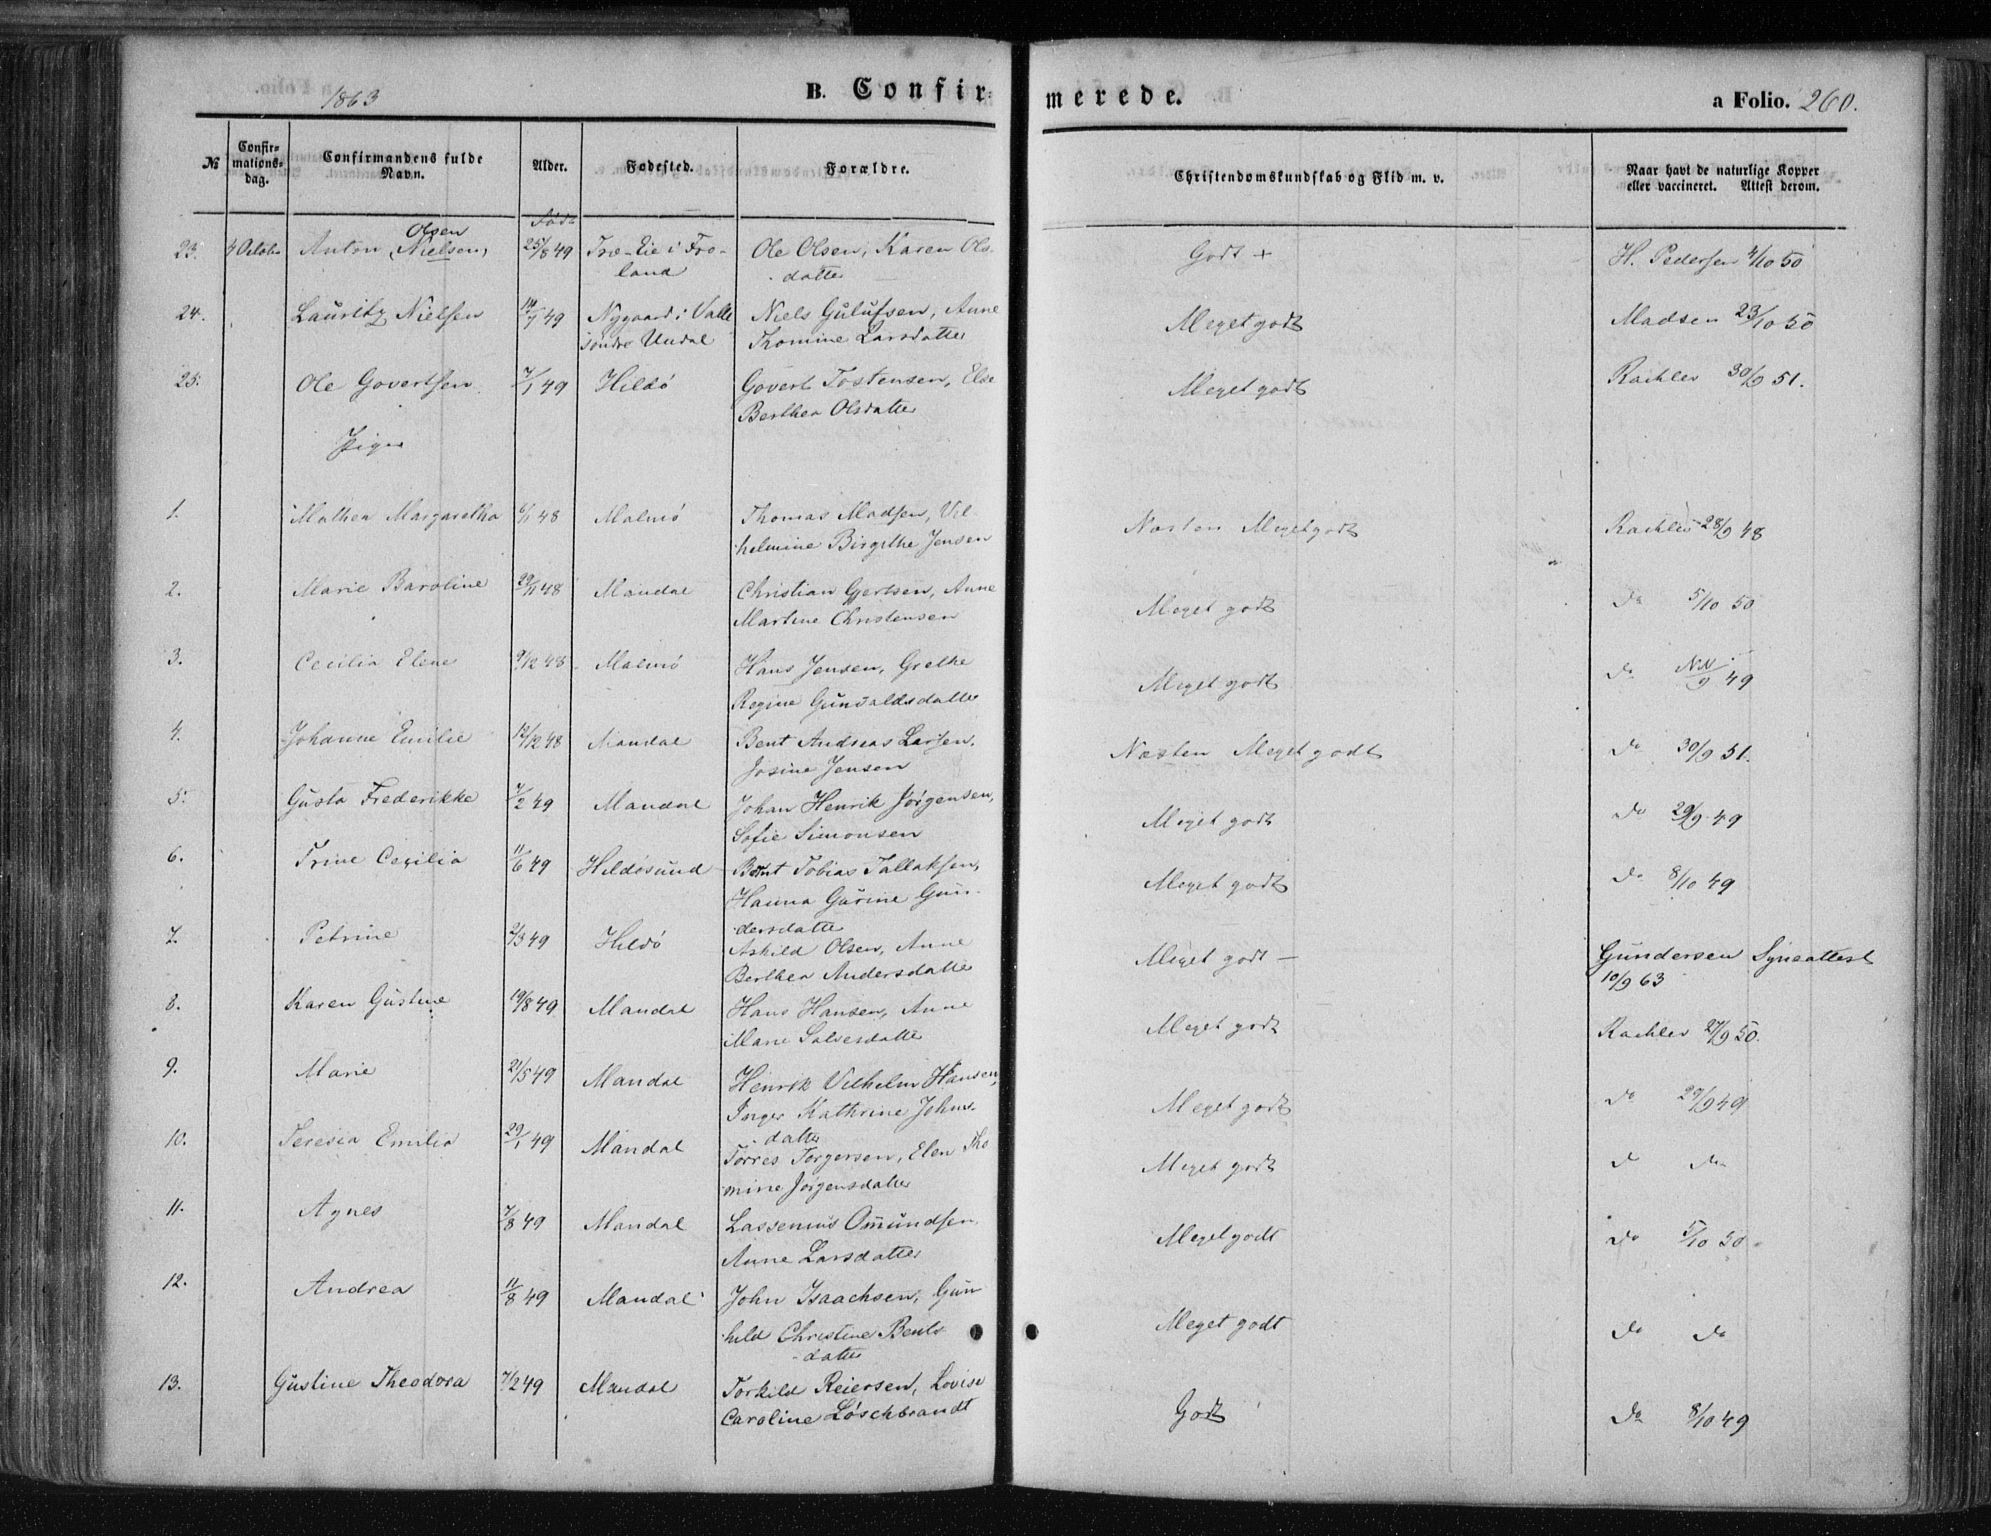 1863 B. Confir- merede. a Folio. 260.
№ Confir-mations-dag. Confirmandens fulde Navn. Alder. Fødested. Forældre. Christendomskundskab og Flid m. v. Naar havt de naturlige Kopper eller vaccineret. Attest derom.
Olsen
23. 4 Octobr Anton Nielsen, 25/8 49 i Fro- Ole Olsen, Karen Ols- Godt + H. Pedersen 4/10 50
land datter
24. Lauritz Nielsen 14/7 49 Nygaard i Valle Niels Gulufsen, Anne Meget godt Madsen 23/10 50
søndre Undal Thomine Larsdatter
25. Ole Govertsen 7/1 49 Hildø Govert Tostensen, Else Meget godt Rachlev 30/9 51.
Berthea Olsdatter
Piger
1. Mathea Margaretha 6/11 48 Malmø Thomas Madsen, Vil- Næsten Meget godt Rachlev 28/9 48
helmine Birgithe Jensen
2. Marie Baroline 29/11 48 Mandal Christian Gjertsen, Anne Meget godt Do 5/10 50
Martine Christensen
3. Cecilia Elene 9/12 48 Malmø Hans Jensen, Grethe Meget godt Do NN/9 49
Regine Gunvaldsdatter
4. Johanne Emilie 12/12 48 Mandal Bent Andreas Larsen, Næsten Meget godt Do 30/9 51.
Josine Jensen
5. Gusta Frederikke 7/2 49 Mandal Johan Henrik Jørgensen, Meget godt Do 29/9 49
Sofie Simonsen
6. Trine Cecilia 11/6 49 Hildøsund Bent Tobias Tallaksen, Meget godt Do 8/10 49
Hanna Gurine Gun-
dersdatter
7. Petrine 2/3 49 Hildø Askild Olsen, Anne Meget godt — Gundersen Synsattest
Berthea Andersdatter 10/9 63
8. Karen Gustine 19/8 49 Mandal Hans Hansen, Anne Meget godt Rachlev 27/9 50.
Marie Salvesdatter
9. Marie 21/5 49 Mandal Henrik Vilhelm Hansen, Meget godt Do 29/9 49
Inger Kathrine Johns-
datter
10. Teresia Emilia 29/1 49 Mandal Torres Torgersen, Elen Tho Meget godt Do Do
mine Jørgensdatter
11. Agnes 7/8 49 Mandal Lassenius Omundsen, Meget godt Do 5/10 50
Anne Larsdatter
12. Andrea 11/8 49 Mandal John Isaachsen, Gun Meget godt Do Do
hild Christine Bents
datter
13. Gustine Theodora 7/2 49 Mandal Torkild Reiersen, Lovise Godt Do 8/10 49
Caroline Löschbrandt